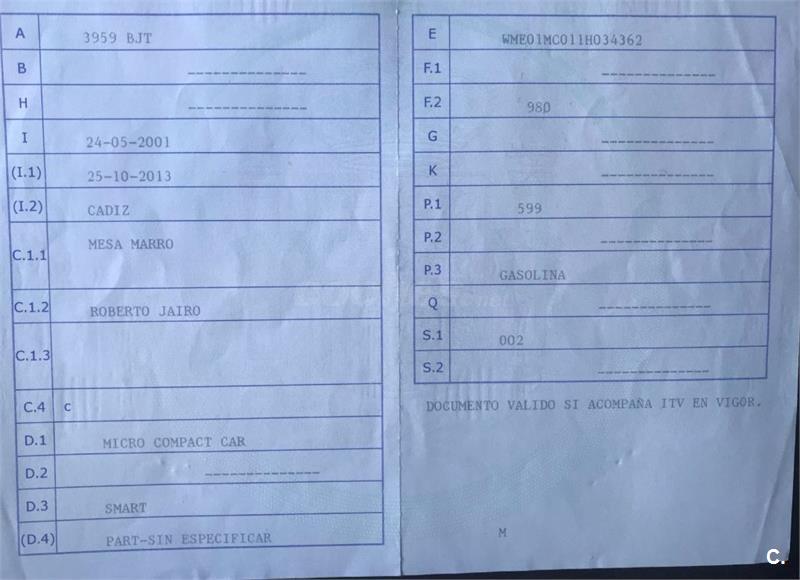 A 3959 BJT
B --------------
H --------------
I 24-05-2001
(I.1) 25-10-2013
(I.2) CADIZ
C.1.1 MESA MARRO
C.1.2 ROBERTO JAIRO
C.1.3
C.4 c
D.1 MICRO COMPACT CAR
D.2 --------------
D.3 SMART
(D.4) PART-SIN ESPECIFICAR
E WME01MC011H034362
F.1 --------------
F.2 980
G --------------
K --------------
P.1 599
P.2 --------------
P.3 GASOLINA
Q --------------
S.1 002
S.2 --------------
DOCUMENTO VALIDO SI ACOMPAÑA ITV EN VIGOR.
M
C.